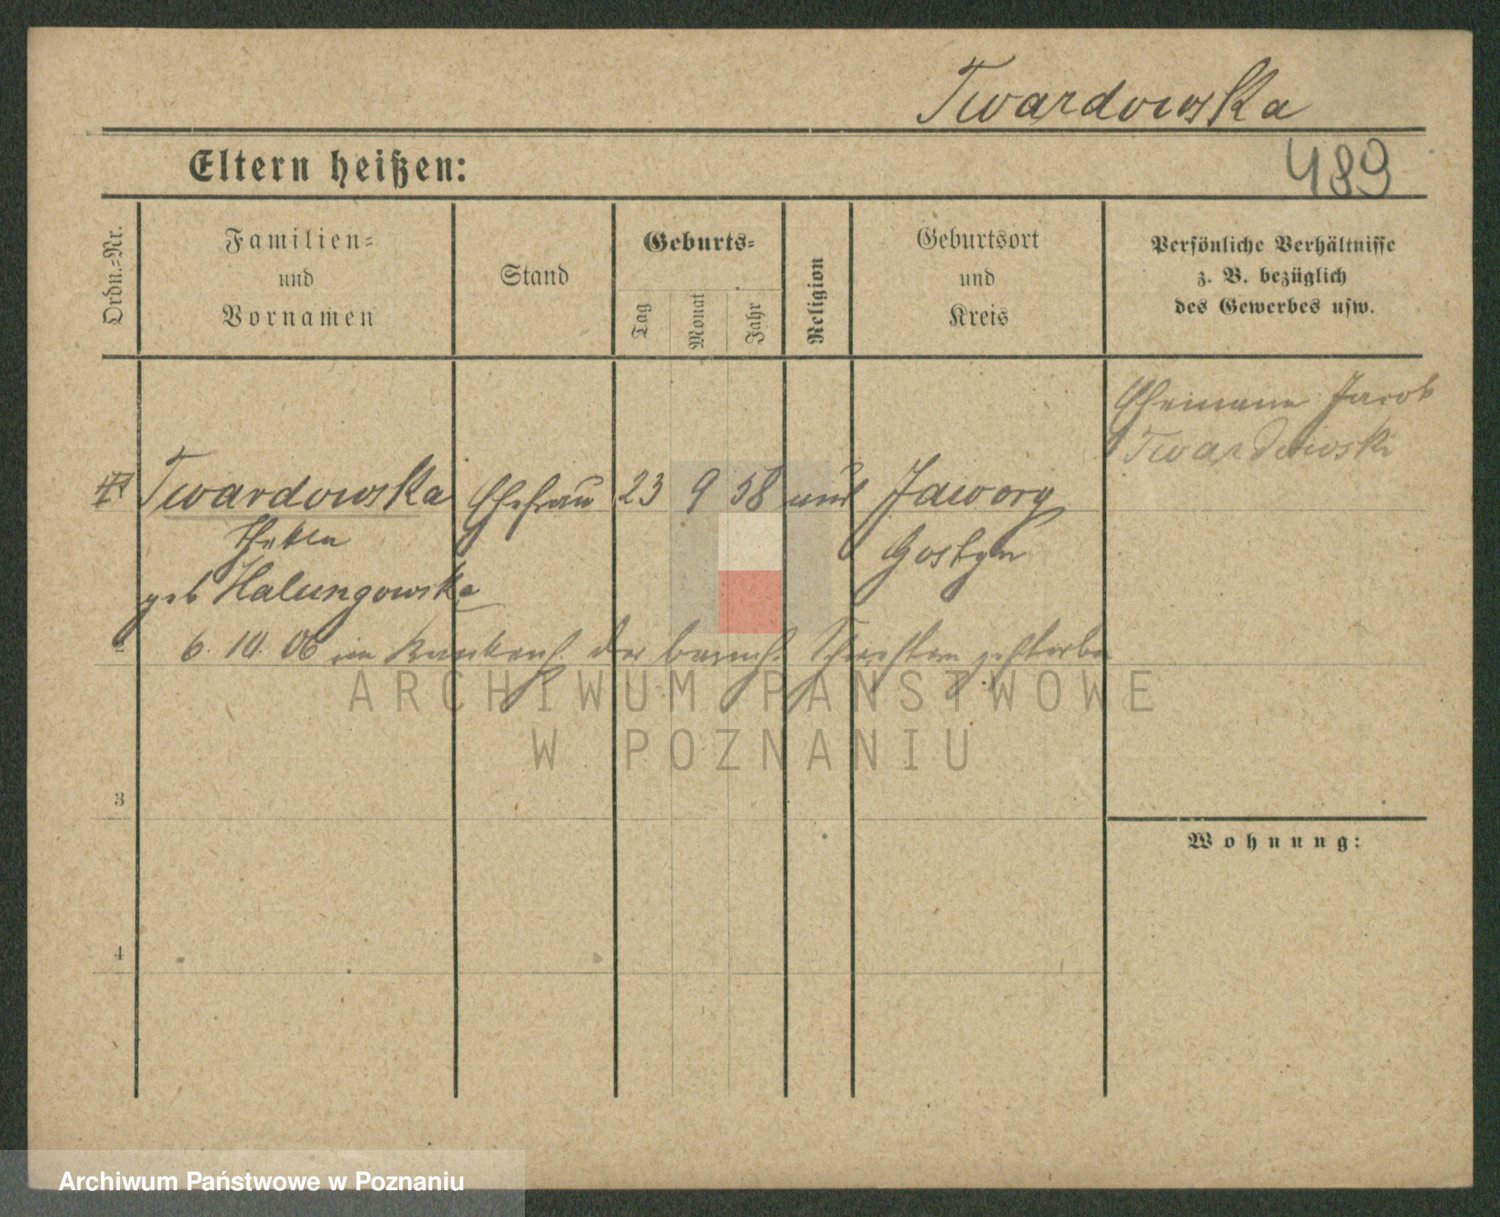 Twardowska
Eltern heißen:
489
Ordn.-Nr.
Familien-
und
Vornamen
Stand
Geburts-
Tag
Monat
Jahr
Religion
Geburtsort
und
Kreis
Persönliche Verhältnisse
z. B. bezüglich
des Gewerbes usw.
Ehemann Jacob
Twardowski
Twardowska Ehefrau 23 9 58 Jawory
Thekla Gostyn
geb Halungowska
6. 10. 06 im der barmh. Schwestern gestorben
3
Wohnung:
4
ARCHIWUM PAŃSTWOWE
W POZNANIU
Archiwum Państwowe w Poznaniu